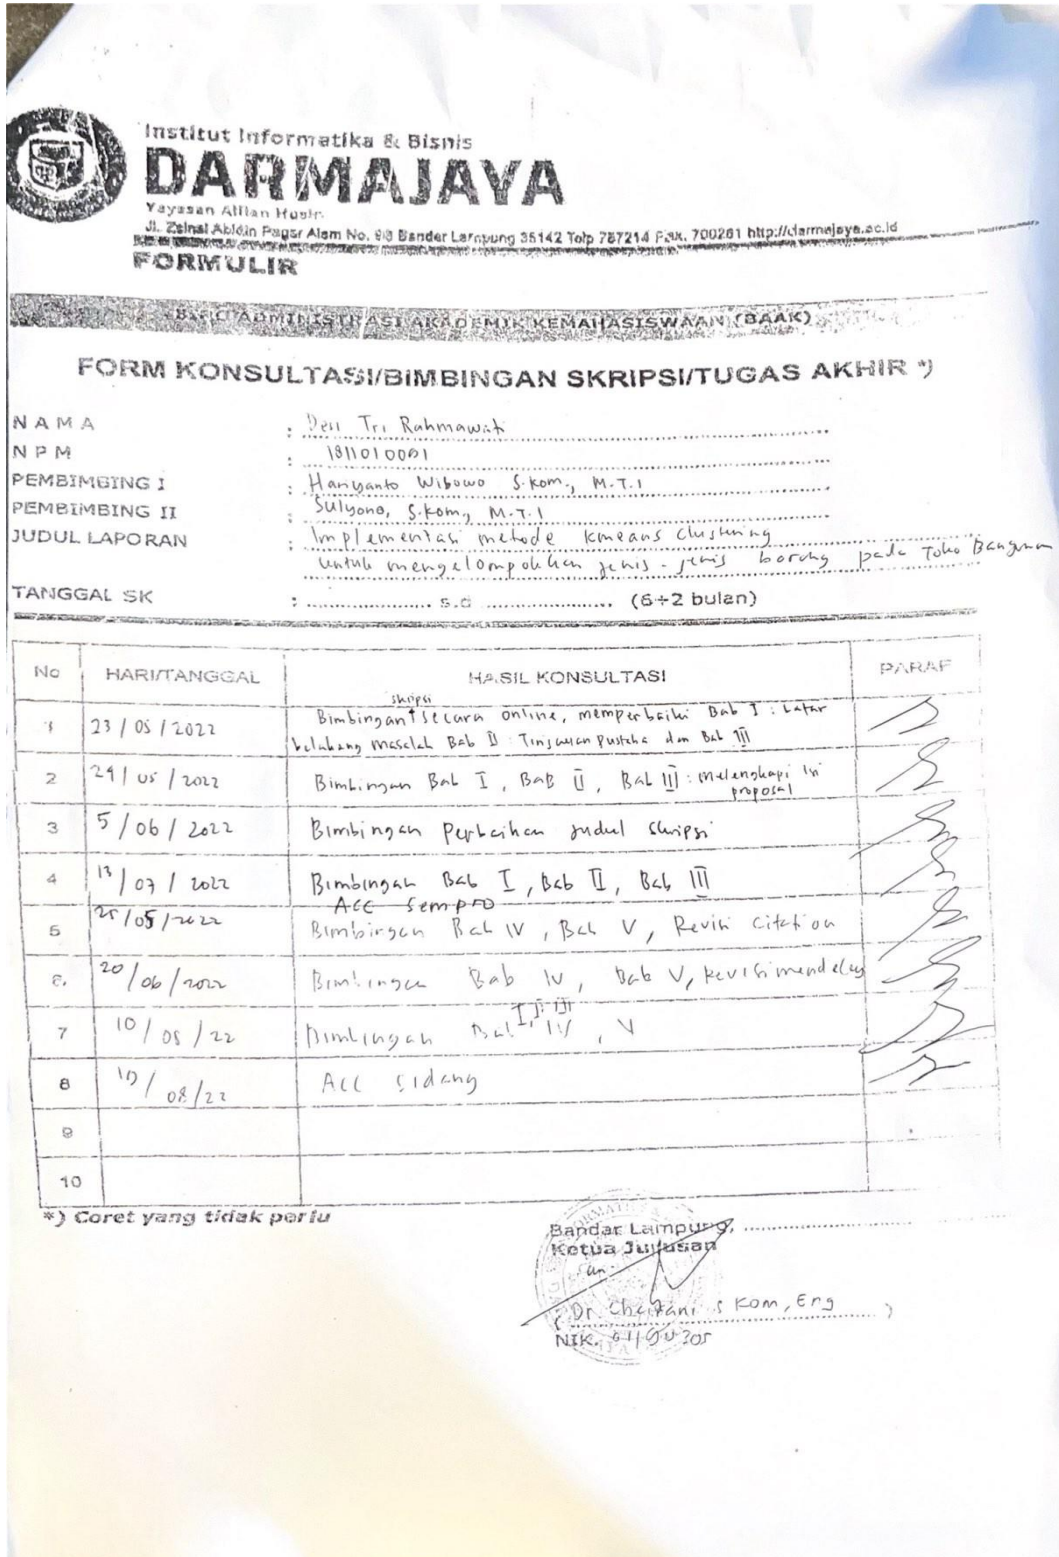 Institut Informatika & Bisnis
DARMAJAYA
Yayasan Alfian Husin
Jl. Zainal Abidin Pagar Alam No. 93 Bandar Lampung 35142 Telp 787214 Fax. 700261 http://darmajaya.ac.id
FORMULIR
BIRO ADMINISTRASI AKADEMIK KEMAHASISWAAN (BAAK)
FORM KONSULTASI/BIMBINGAN SKRIPSI/TUGAS AKHIR *)
NAMA : Tri Rahmawati
NPM :
PEMBIMBING I : Hariyanto Wibowo S.kom., M.T.I
PEMBIMBING II : Sulyono, S.kom., M.T.I
JUDUL LAPORAN : Implementasi metode kmeans clustering
untuk mengelompokkan jenis-jenis barang pada Toko Bangunan
TANGGAL SK : .................... s.d .................... (6+2 bulan)
No HARI/TANGGAL HASIL KONSULTASI PARAF
1 23/05/2022 Bimbingan skripsi secara online, memperbaiki Bab I : Latar
belakang masalah Bab II : Tinjauan pustaka dan Bab III
2 29/05/2022 Bimbingan Bab I, BAB II, Bab III : melengkapi isi
proposal
3 5/06/2022 Bimbingan Perbaikan judul skripsi
4 13/07/2022 Bimbingan Bab I, Bab II, Bab III
ACC Sempro
5 25/05/2022 Bimbingan Bab IV, Bab V, Revisi citation
6. 20/06/2022 Bimbingan Bab IV, Bab V, Revisi mendeley
7 10/08/22 Bimbingan Bab I, II, III, IV, V
8 /08/22 ACC sidang
9
10
*) Coret yang tidak perlu
Bandar Lampung, ....................
Ketua Jurusan
(Dr. S Kom, Eng)
NIK.